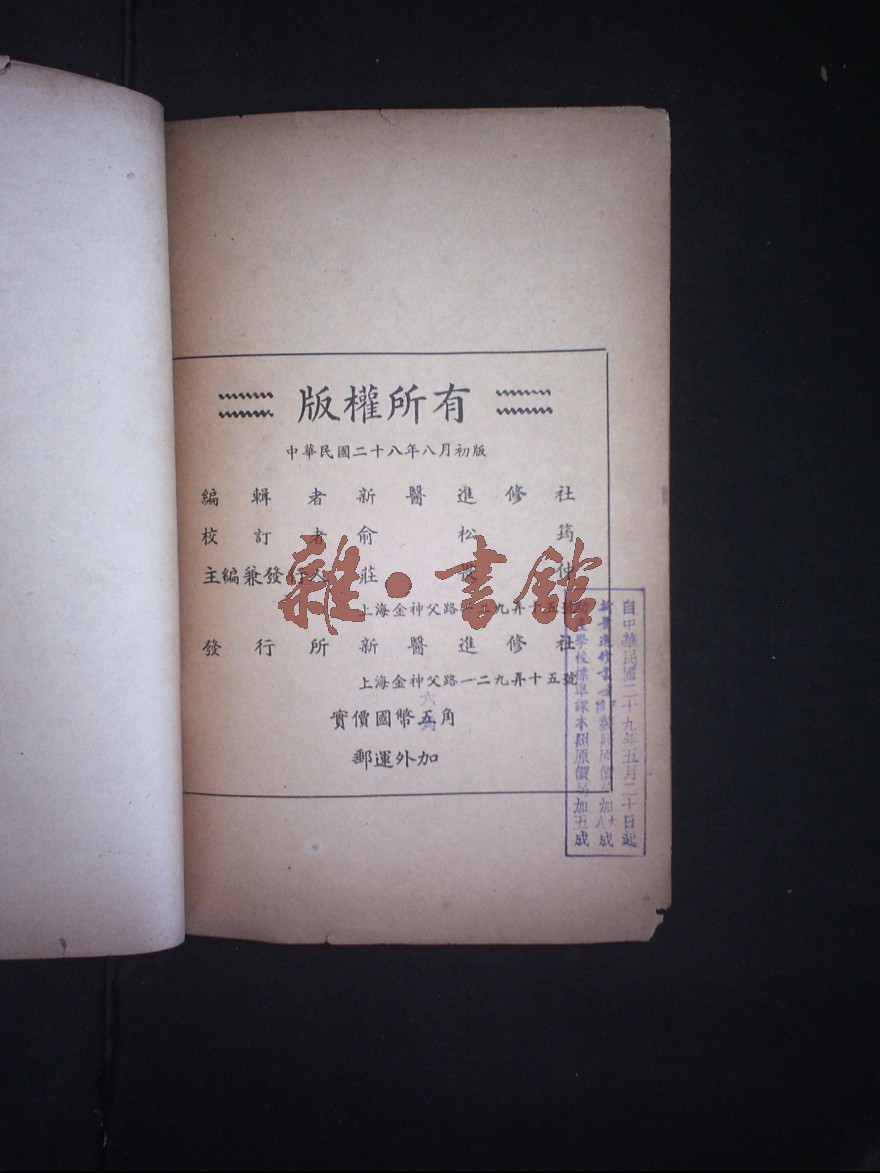 版權所有
中華民國二十八年八月初版
編輯者新醫進修社
校訂者俞松筠
主編兼發行人莊 仲
上海金神父路一二九弄十五號
發行所新醫進修社
上海金神父路一二九弄十五號
六
實價國幣五角
郵運外加
雜·書館
自中華民國二十九年五月二十日起
裝訂原價 加八成
學校標準課本照原價 加五成